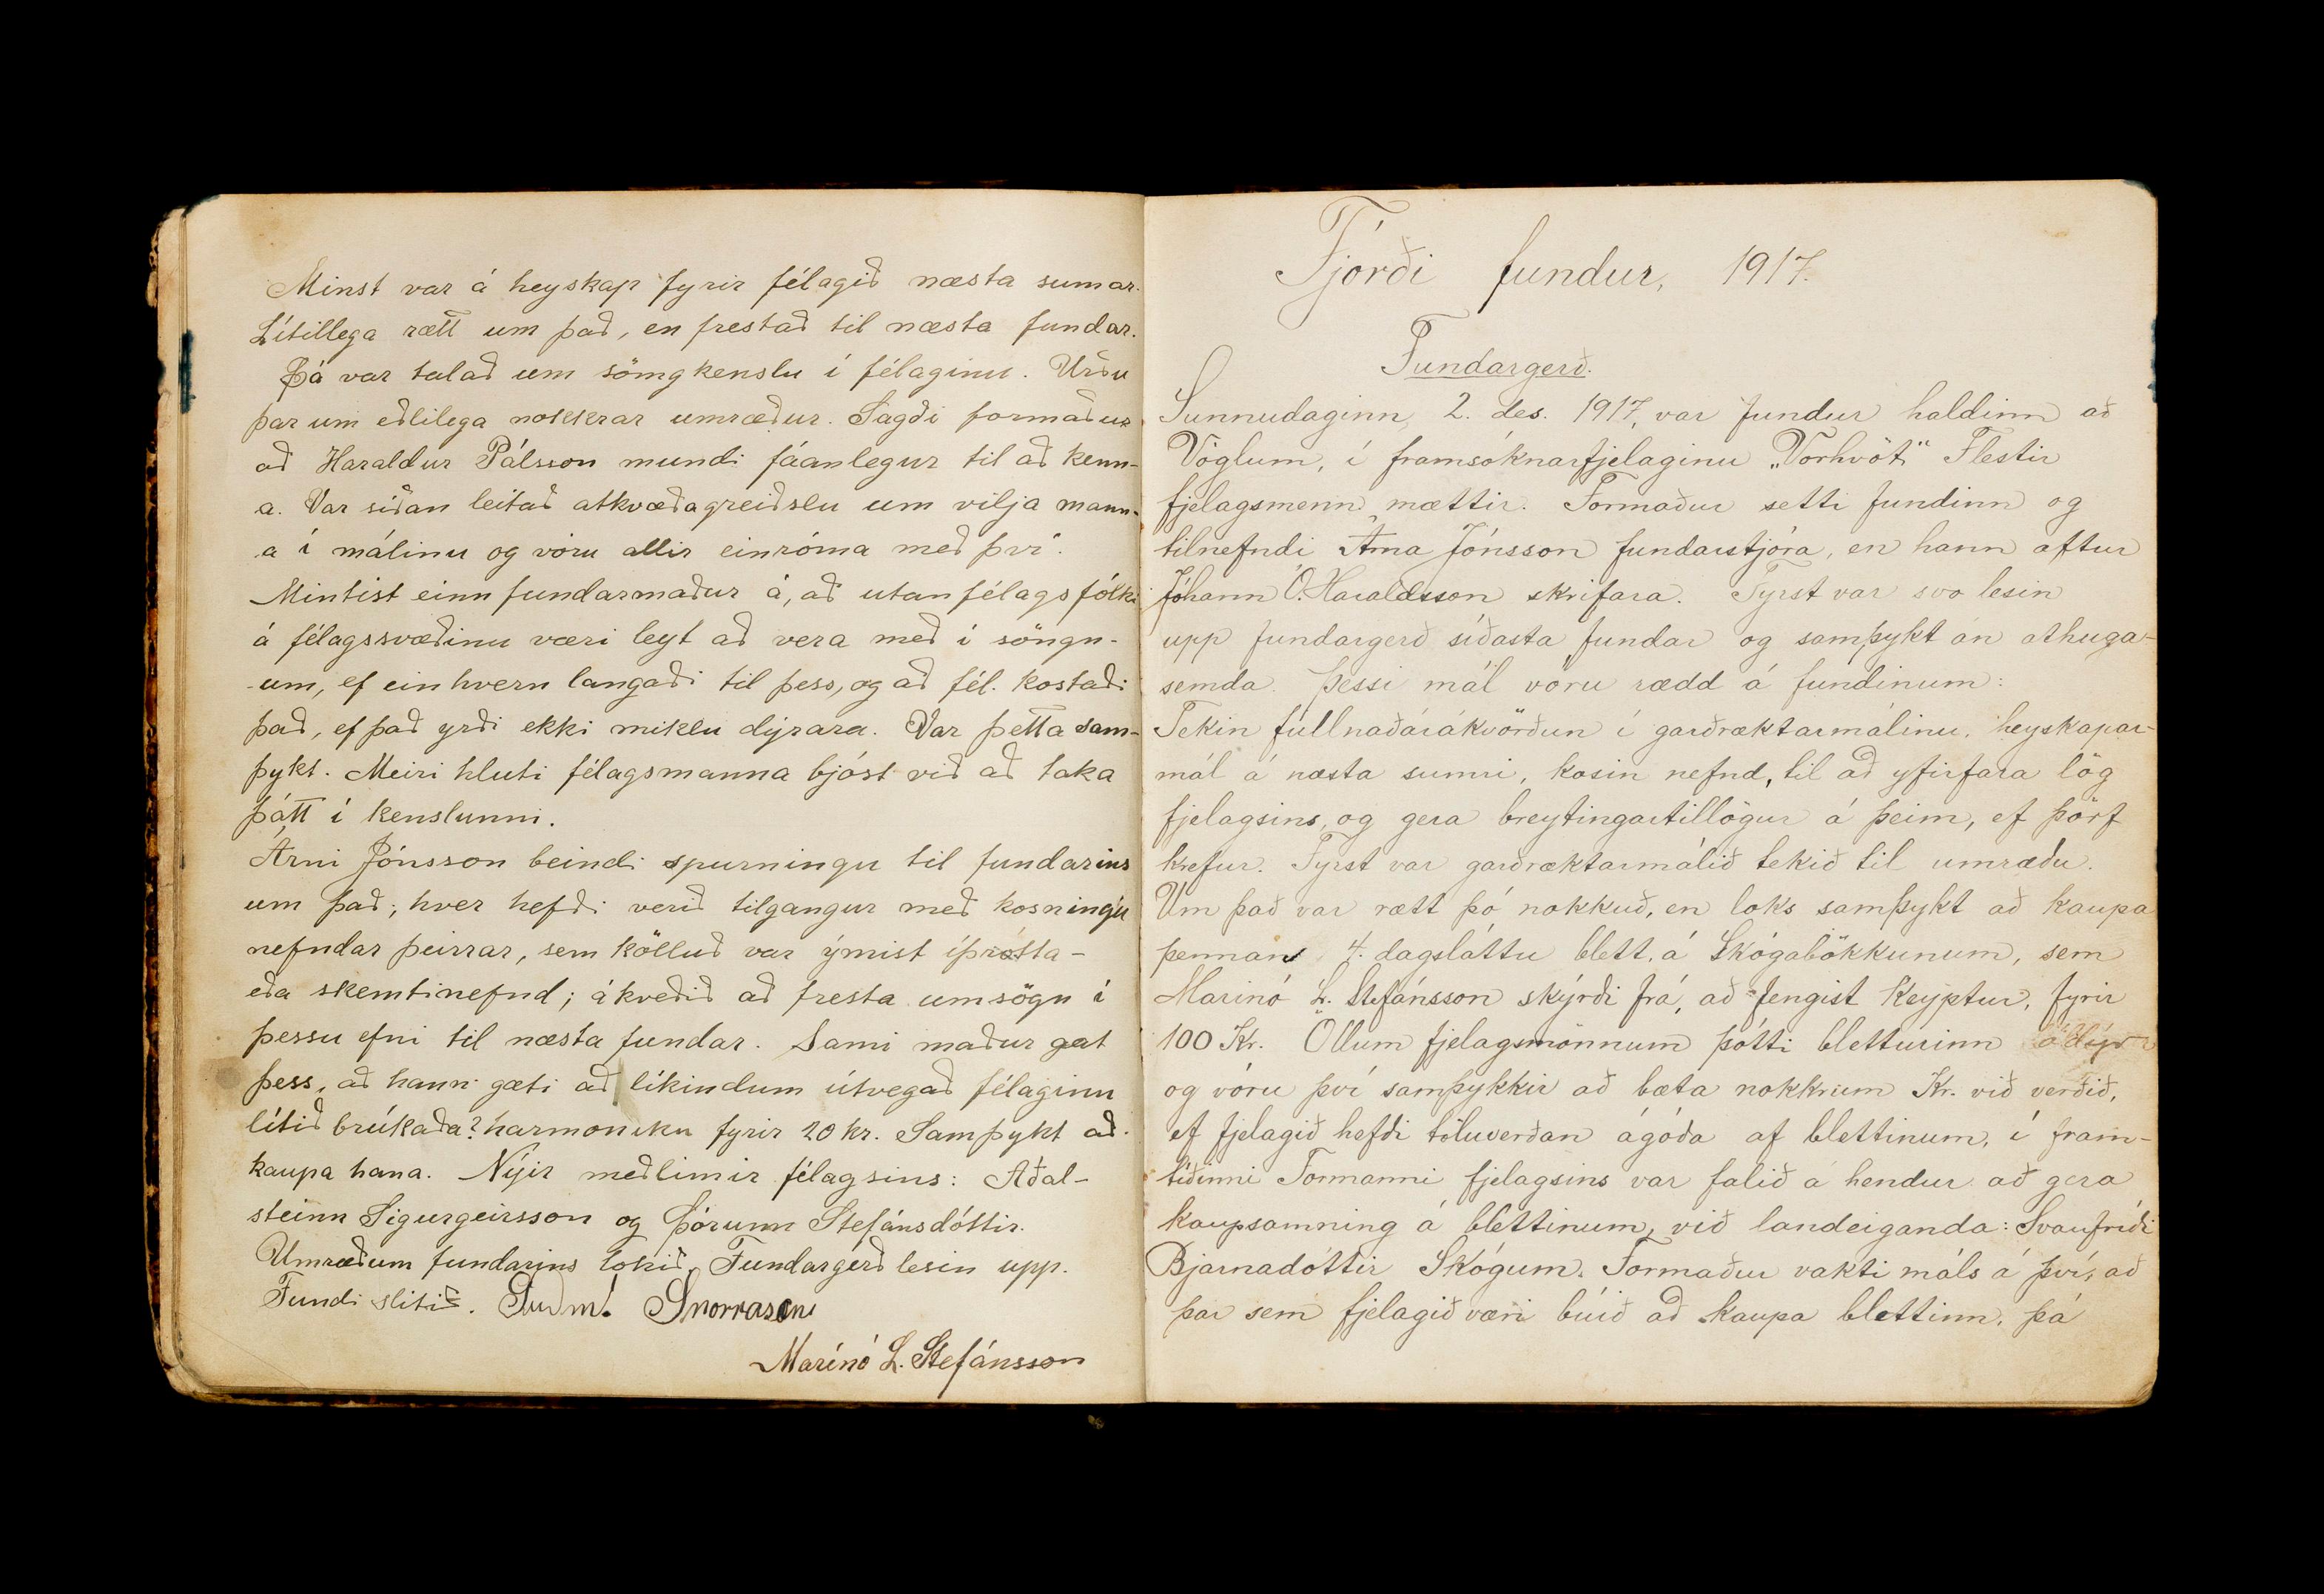 Minst var á heyskap fyrir félagið næsta sumar.
Lítillega rætt um það, en frestað til næsta fundar.
Þá var talað um sömgkenslu í félaginu. Urðu
þar um eðlilega nokkrar umræður. Sagði formaður
að Haraldur Pálsson mundi fáanlegur til að kenn-
a. Var síðan leitað atkvæðagreiðslu um vilja mann-
a í málinu og vóru allir einróma með því.
Mintist einn fundarmaður á, að utanfélagsfólki
á félagssvæðinu væri leyt að vera með í söngn-
-um, ef einhvern langaði til þess, og að fél. kostaði
það, ef það yrði ekki miklu dýrara. Var þetta sam-
þykt. Meiri hluti félagsmanna bjóst við að taka
þátt í kenslunni.
Árni Jónsson beindi spurningu til fundarins
um það; hver hefði verið tilgangur með kosningu
nefndar þeirrar, sem kölluð var ýmist íþrótta-
eða skemtinefnd; ákveðið að fresta umsögn í
þessu efni til næsta fundar. Sami maður gat
þess, að hann gæti að líkindum útvegað félaginu
lítið brúkaða? harmoniku fyrir 20 kr. Samþykt að
kaupa hana. Nýjir meðlimir félagsins: Aðal-
steinn Sigurgeirsson og Þórunn Stefánsdóttir.
Umræðum fundarins lokið. Fundargerð lesin upp.
Fundi slitið. Guðm. Snorrason
Marínó L. Stefánsson
Fjórði fundur, 1917.
Fundargerð.
Sunnudaginn, 2. des. 1917, var fundur haldinn að
Vöglum, í framsóknarfjelaginu „Vorhvöt“ Flestir
fjelagsmenn mættir. Formaður setti fundinn og
tilnefndi Árna Jónsson fundarstjóra, en hann aftur
Jóhann Ó. Haraldsson skrifara. Fyrst var svo lesin
upp fundargerð síðasta fundar og samþykt án athuga-
semda. Þessi mál vóru rædd á fundinum:
Tekin fullnaðarákvörðun í garðræktarmálinu, heyskapar-
mál á næsta sumri, kosin nefnd, til að yfirfara lög
fjelagsins, og gera breytingartillögur á þeim, ef þörf
krefur. Fyrst var garðræktarmálið tekið til umræðu.
Um það var rætt þó nokkuð, en loks samþykt að kaupa
þennan 4. dagsláttu blett, á Skógabökkunum, sem
Marinó L. Stefánsson skýrði frá, að fengist keyptur, fyrir
100 Kr. Öllum fjelagsmönnum þótti bletturinn ódýr
og vóru því samþykkir að bæta nokkrum Kr. við verðið,
ef fjelagið hefði tiluverðan ágóða af blettinum, í fram-
tíðinni Formanni fjelagsins var falið á hendur að gera
kaupsamning á blettinum, við landeiganda: Svanfríði
Bjarnadóttir Skógum. Formaður vakti máls á því, að
þar sem fjelagið væri búið að kaupa blettinn, þá